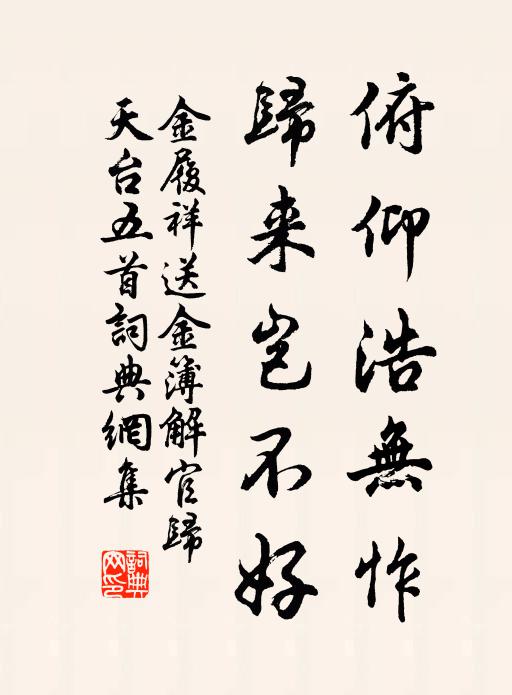 俯仰浩無怍
歸来豈不好
金履祥送金簿解官歸
天台五首詞典網集
詞典網印